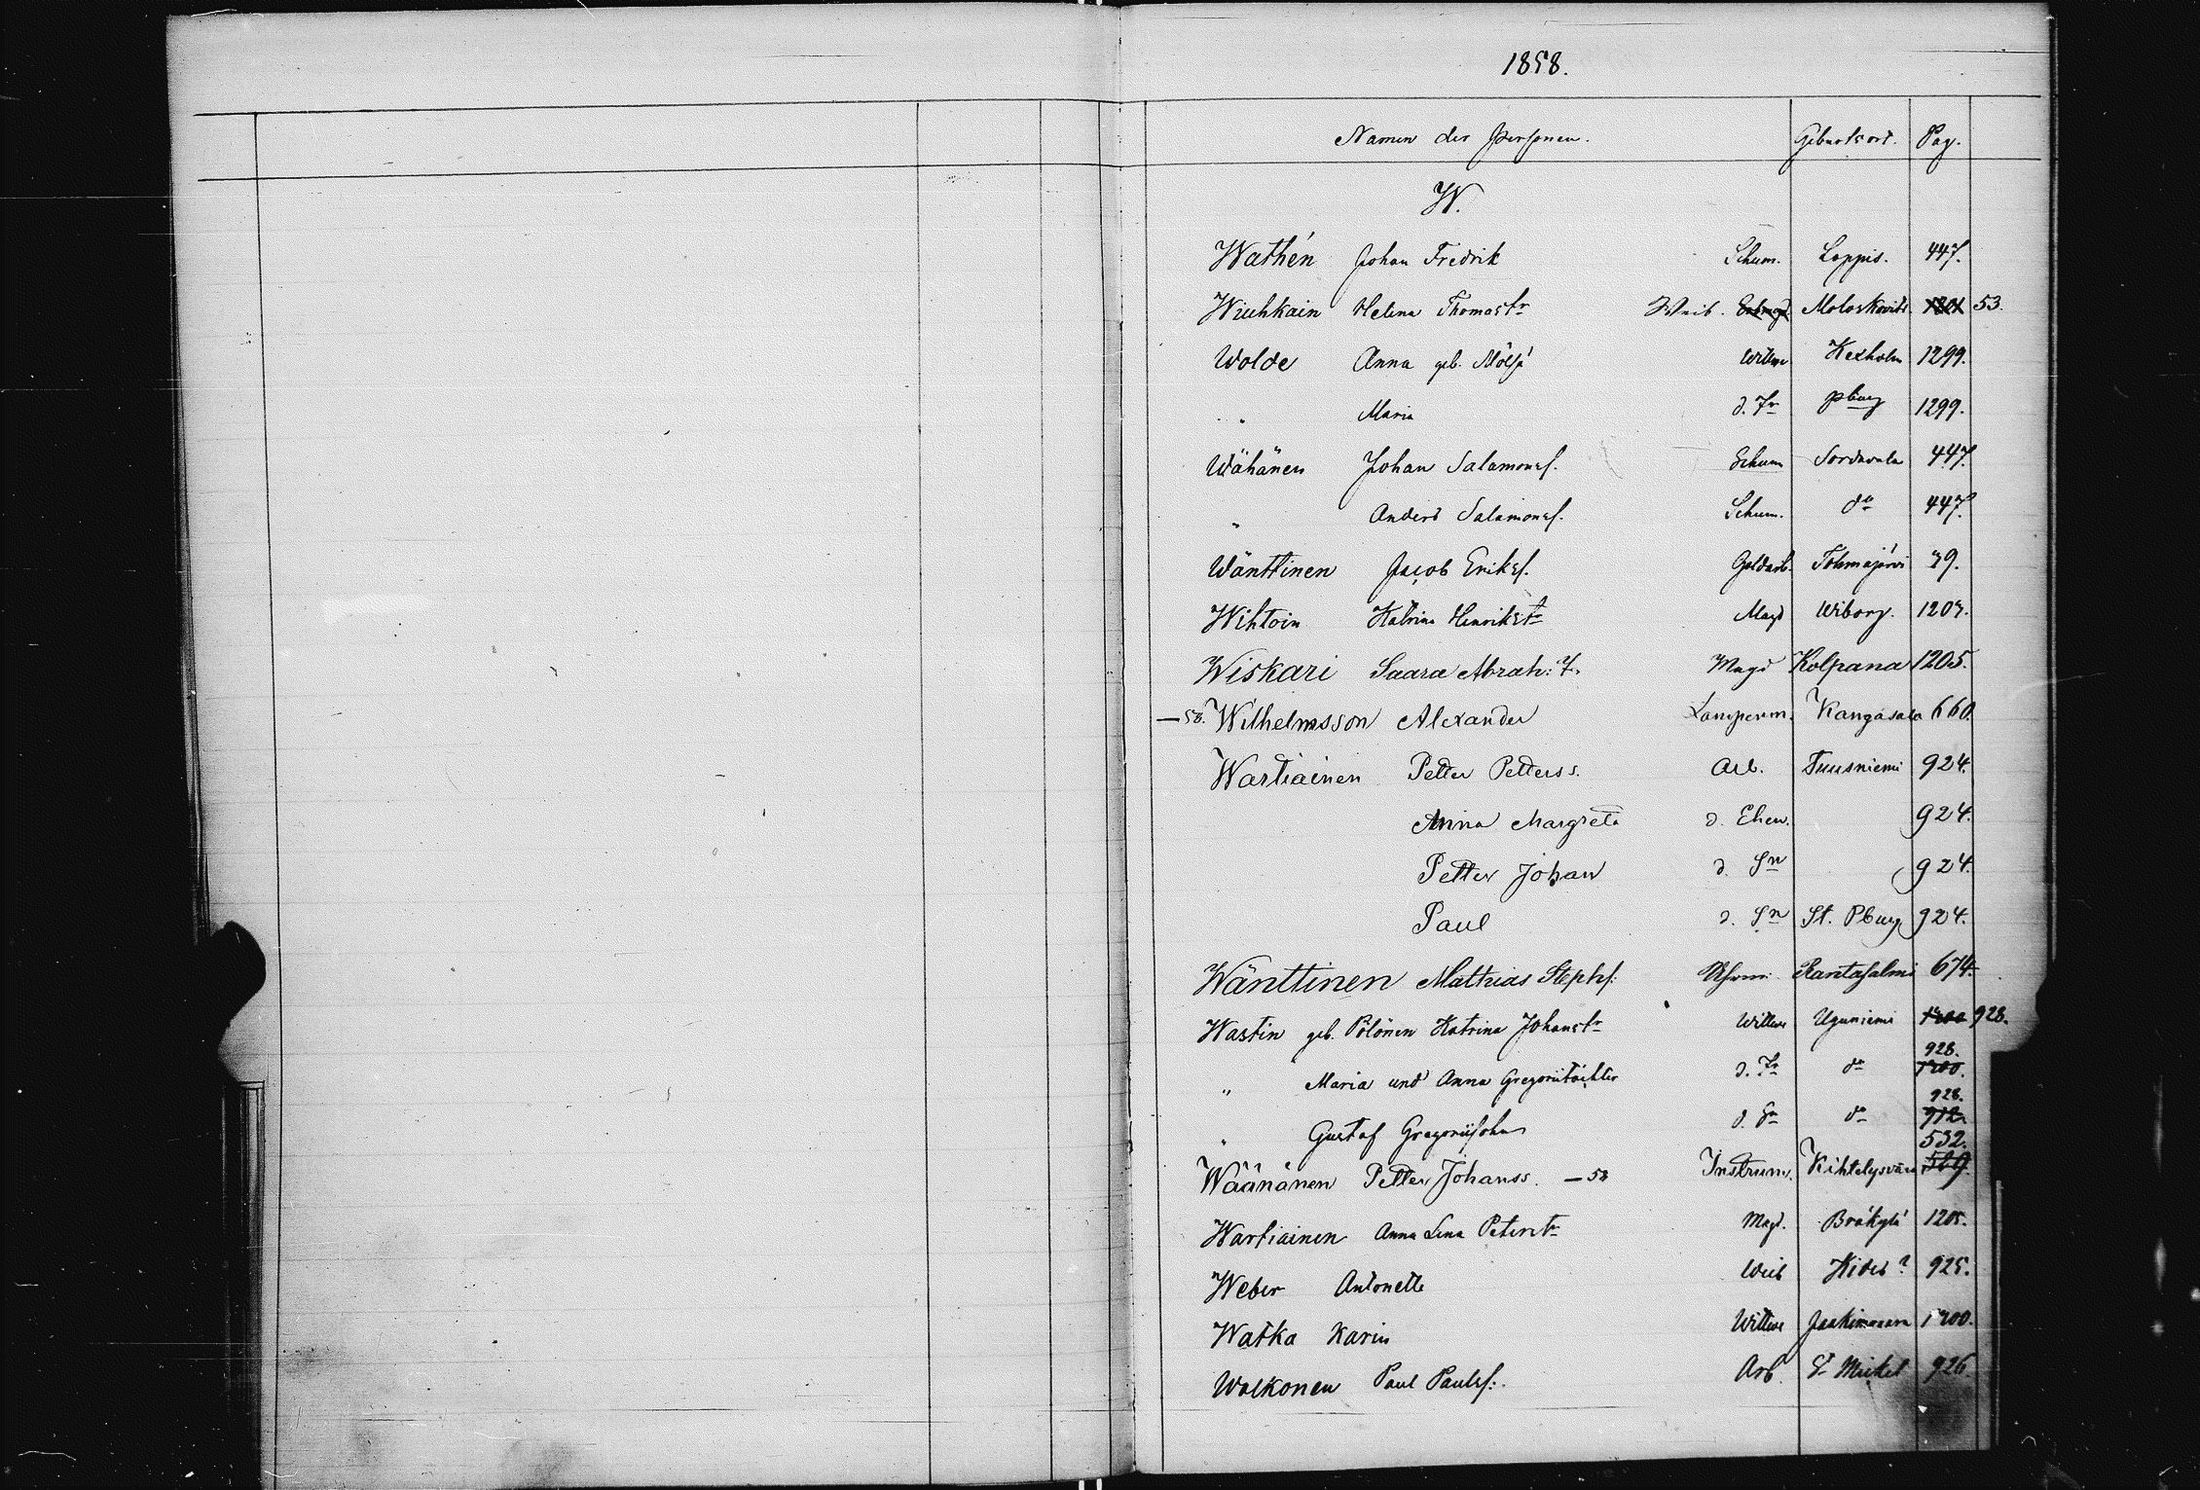 1858.
Namen der Personen. Geburtsort. Pag.
W.
Wathén Johan Fredrik Schum. Loppis. 447.
Wiuhkain Helena Thomastr Weib. Moloskovits 1301 53.
Wolde Anna geb. Wittwe Kexholm 1299.
" Maria d. Tr Pburg 1299.
Wähänen Johan Salamonsf. Schum Sordavala 447.
" Anders Salamonsf. Schum. do 447.
Wänttinen Jacob Eriksf. Goldarb. Tohmajärvi 39.
Wihtoin Katrina Henrikstr Magd Wiborg. 1207.
Wiskari Saara Abrah: T. Magd Kolpana 1205.
—58. Wilhelmsson Alexander Lampenm. Kangasala 660.
Wartiainen Petter Petterss. Arb. Tuusniemi 924.
Anna Margreta d. Ehew. 924.
Petter Johan d. Sn 924.
Paul d. Sn St. Pburg 924.
Wänttinen Mathias Stephf: Uhrm: Rantasalmi 674.
Wastin geb. Pölönen Katrina Johanstr Wittwe Uguniemi 1200 928.
" Maria und Anna Gregoriitöchter d. Tr do 928. 1200.
" Gustaf Gregoriisohn d. Sn do 928. 912.
Wäänänen Petter Johanss. —58 Instrum. Kihtelysvaara 532. 589.
Wartiainen Anna Lena Peterstr Magd. Bräkylä 1205.
Weber Antonette Weib Kides? 925.
Watka Karin Wittwe Jaakimvaara 1200.
Walkonen Paul Paulsf:. Arb. St Michel 926